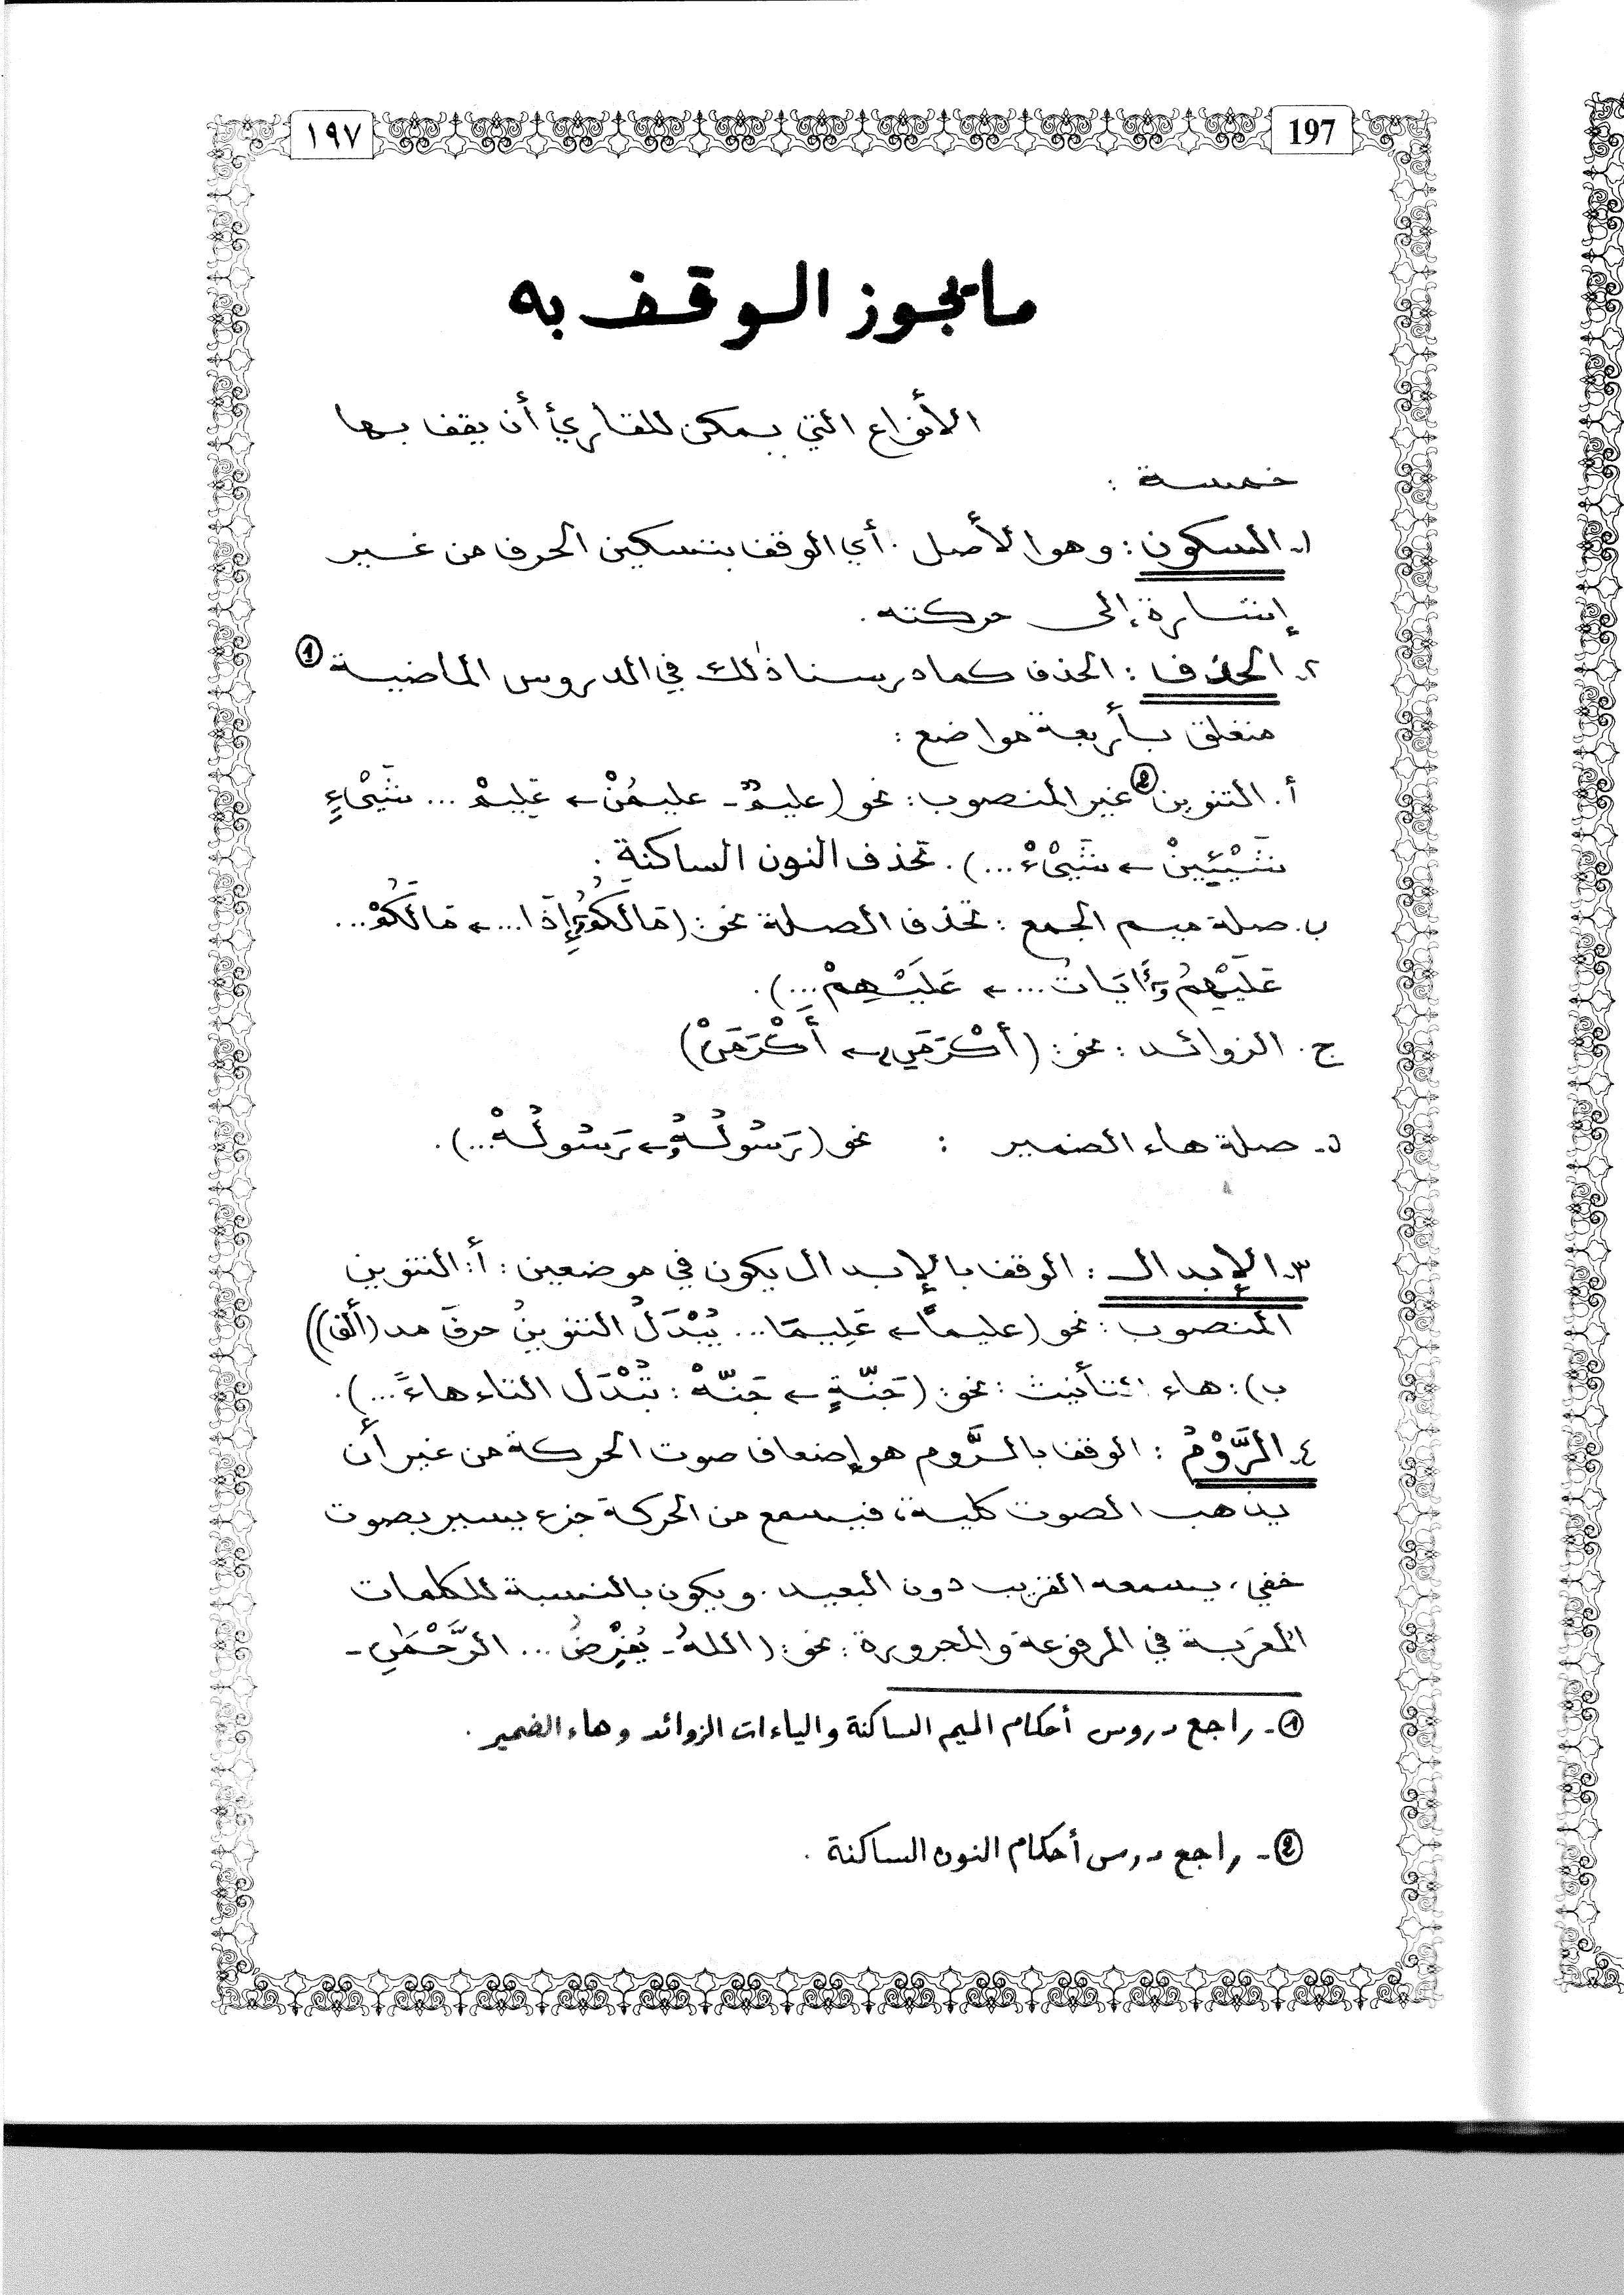 ١٩٧
197
ما يجوز الوقف به
الأنواع التي يمكن للقارئ أن يقف بها
خمسة :
١ـ السكون : وهو الأصل . أي الوقف بتسكين الحرف من غير
إشارة إلى حركته .
٢ـ الحذف : الحذف كما درسنا ذٰلك في الدروس الماضية ①
متعلق بأربعة مواضع :
أ. التنوين ② غير المنصوب : نحو (عليمٌ ـ عليمُنْ ← عَلِيمْ ... شَيْءٍ
شَيْئِينْ ← شَيْءْ ...) . تحذف النون الساكنة .
ب. صلة ميم الجمع : تحذف الصلة نحو : (مَالَكُمُۥ إِذَا ... ← مَالَكُمْ ...
عَلَيْهِمُۥ ءَايَاتُ ... ← عَلَيْهِمْ ...) .
ج. الزوائد : نحو : (أَكْرَمَنِۦ ← أَكْرَمَنْ)
د ـ صلة هاء الضمير : نحو (رَسُولُهُۥ ← رَسُولُهْ ...) .
٣ـ الإبدال : الوقف بالإبدال يكون في موضعين : أ : التنوين
المنصوب : نحو (عليماً ← عَلِيمَا ... يُبْدَلُ التنوينُ حرفَ مد (ألف))
ب) : هاء التأنيث : نحو : (جَنَّةٍ ← جَنَّهْ : تُبْدَل التاء هاءً ...) .
٤ـ الرَّوْمُ : الوقف بالرَّوم هو إضعاف صوت الحركة من غير أن
يذهب الصوت كلية ، فيسمع من الحركة جزء يسير بصوت
خفي ، يسمعه القريب دون البعيد . ويكون بالنسبة للكلمات
المعَربة في المرفوعة والمجرورة : نحو : (اللهُ ـ يُفْرِضُ ... الرَّحْمٰنِ ـ
① ـ راجع دروس أحكام الميم الساكنة والياءات الزوائد وهاء الضمير .
② ـ راجع درس أحكام النون الساكنة .